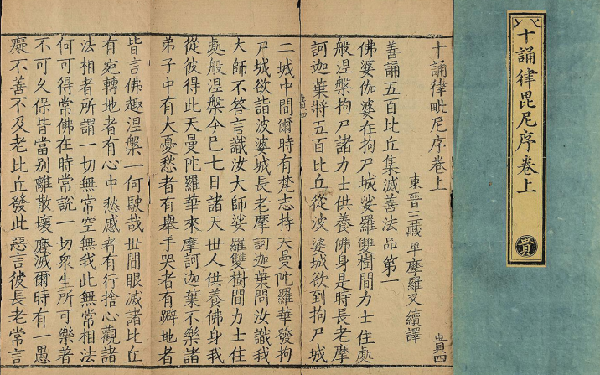 十誦律毘尼序卷上
十誦律毗尼序卷上
東晉三藏卑摩羅叉續譯
善誦五百比丘集滅善法品第一
佛婆伽婆在拘尸城娑羅雙樹間力士住處
般涅槃拘尸諸力士供養佛身是時長老摩
訶迦葉將五百比丘從波婆城欲到拘尸城
二城中間爾時有梵志持天曼陀羅華發拘
尸城欲詣波婆城長老摩訶迦葉問汝識我
大師不答言識汝大師娑羅雙樹間力士住
處般涅槃今已七日諸天世人供養佛身我
從彼得此天曼陀羅華來摩訶迦葉不樂諸
弟子中有大憂愁者有舉手哭者有躃地者
皆言佛趣涅槃一何駃哉世間眼滅諸比丘
有宛轉地者有心中愁慼者有行捨心觀諸
法相者所謂一切無常空無我此無常相法
何可得常佛在時常說一切衆生所可樂著
不可久保皆當別離散壞磨滅爾時有一愚
癡不善不及老比丘發此惡言彼長老常言